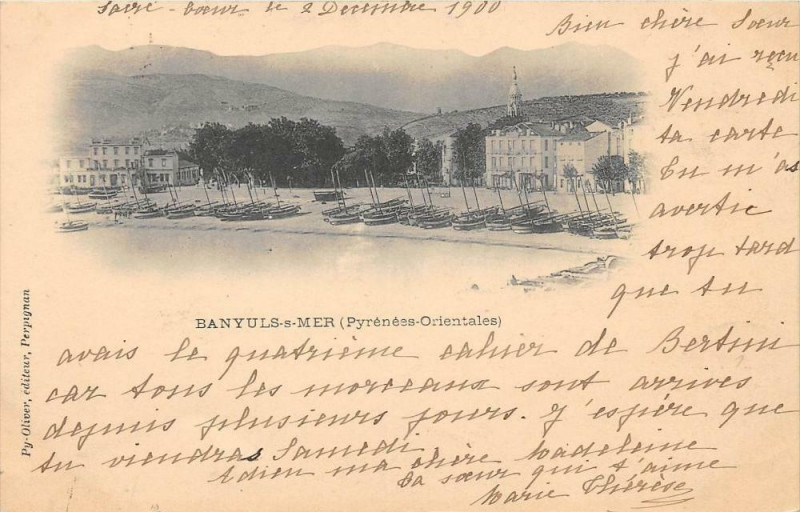 Sacré-Coeur le 2 Decembre 1900
Bien chère Sœur
j'ai reçu
Vendredi
ta carte
Tu m'as
avertie
trop tard
que tu
BANYULS-s-MER (Pyrénées-Orientales)
avais le quatrième cahier de Bertini
car tous les morceaux sont arrives
depuis plusieurs jours. J'espère que
tu viendras Samedi.
Adieu ma chère Madeleine
Ta sœur qui t'aime
Marie Thérèse
Py-Oliver, éditeur, Perpignan